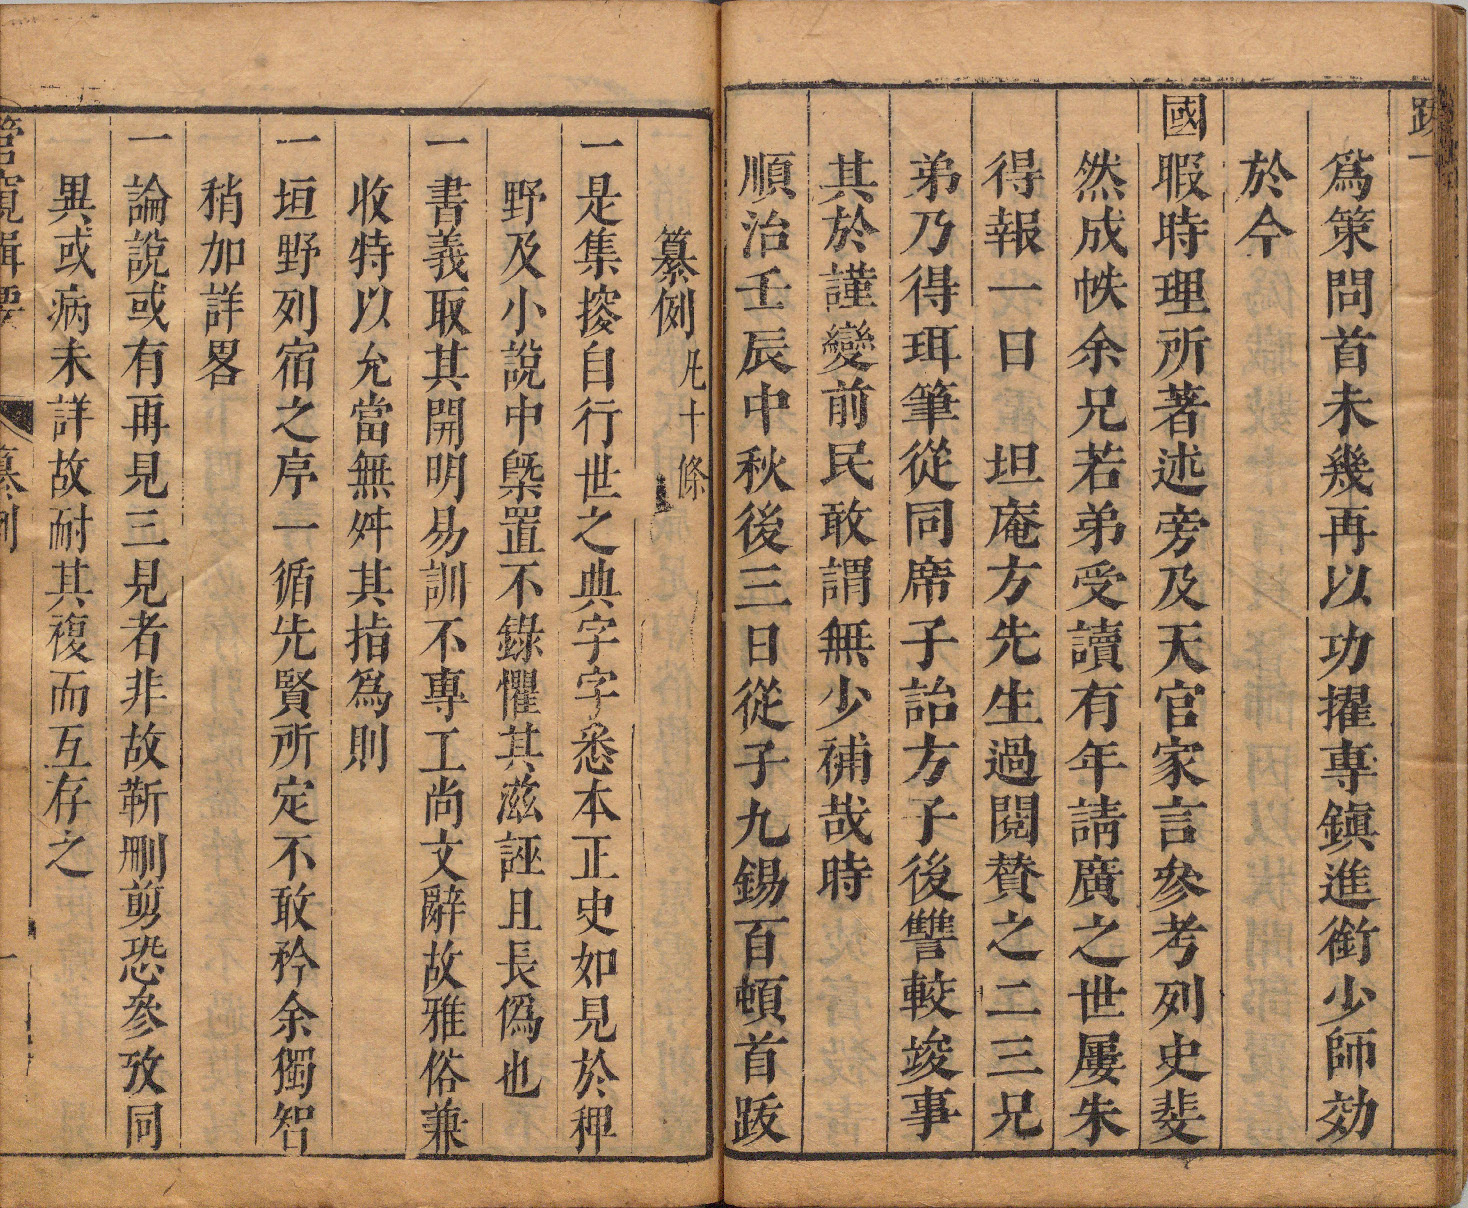 跋
爲策問首未幾再以功擢專鎭進銜少師効
於今
國暇時理所著述旁及天官家言參考列史斐
然成帙余兄若弟受讀有年請廣之世屢朱
得報一日　坦庵方先生過閱贊之二三兄
弟乃得珥筆從同席子詒方子後讐較竣事
其於謹變前民敢謂無少補哉時
順治壬辰中秋後三日從子九錫百頓首跋
纂例 凡十條
一是集採自行世之典字字悉本正史如見於稗
野及小說中槩置不錄懼其滋誣且長僞也
一書義取其開明易訓不專工尚文辭故雅俗兼
收特以允當無舛其指爲則
一垣野列宿之序一循先賢所定不敢矜余獨智
稍加詳畧
一論說或有再見三見者非故靳刪剪恐參攷同
異或病未詳故耐其複而互存之
管窺輯要　纂例　一